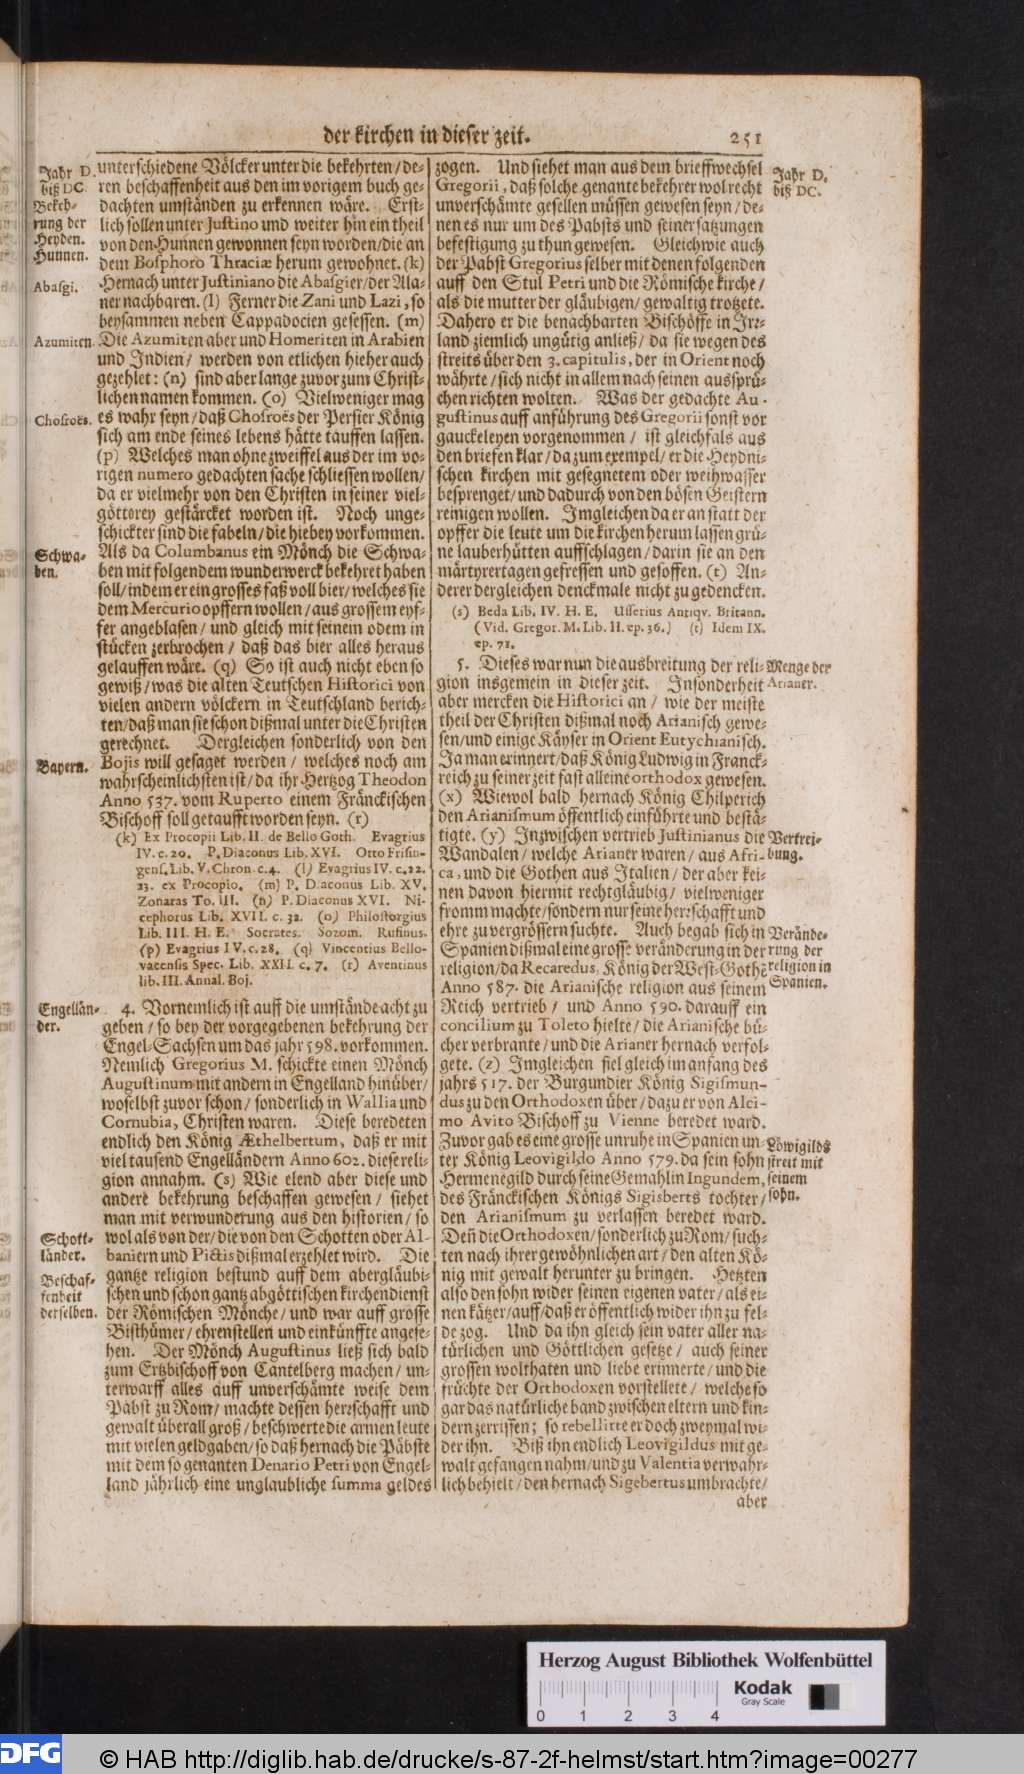 der kirchen in dieser zeit.
251
Jahr D.
biß DC.
Bekeh-
rung der
Heyden.
Hunnen.
Abasgi.
Azumiten.
Chosroës.
Schwa-
ben.
Bayern.
Engellän-
der.
Schott-
länder.
Beschaf-
fenheit
derselben.
unterschiedene Völcker unter die bekehrten / de-
ren beschaffenheit aus den im vorigem buch ge-
dachten umständen zu erkennen wäre. Erst-
lich sollen unter Justino und weiter hin ein theil
von den Hunnen gewonnen seyn worden / die an
dem Bosphoro Thraciæ herum gewohnet. (k)
Hernach unter Justiniano die Abasgier / der Ala-
ner nachbaren. (l) Ferner die Zani und Lazi, so
beysammen neben Cappadocien gesessen. (m)
Die Azumiten aber und Homeriten in Arabien
und Indien / werden von etlichen hieher auch
gezehlet: (n) sind aber lange zuvor zum Christ-
lichen namen kommen. (o) Vielweniger mag
es wahr seyn / daß Chosroës der Persier König
sich am ende seines lebens hätte tauffen lassen.
(p) Welches man ohne zweiffel aus der im vo-
rigen numero gedachten sache schliessen wollen /
da er vielmehr von den Christen in seiner viel-
götterey gestärcket worden ist. Noch unge-
schickter sind die fabeln / die hiebey vorkommen.
Als da Columbanus ein Mönch die Schwa-
ben mit folgendem wunderwerck bekehret haben
soll / indem er ein grosses faß voll bier / welches sie
dem Mercurio opffern wollen / aus grossem eyf-
fer angeblasen / und gleich mit seinem odem in
stücken zerbrochen / daß das bier alles heraus
gelauffen wäre. (q) So ist auch nicht eben so
gewiß / was die alten Teutschen Historici von
vielen andern völckern in Teutschland berich-
ten / daß man sie schon dißmal unter die Christen
gerechnet. Dergleichen sonderlich von den
Bojis will gesaget werden / welches noch am
wahrscheinlichsten ist / da ihr Hertzog Theodon
Anno 537. vom Ruperto einem Fränckischen
Bischoff soll getaufft worden seyn. (r)
(k) Ex Procopii Lib. II. de Bello Goth. Evagrius
IV. c. 20. P. Diaconus Lib. XVI. Otto Frisin-
gens. Lib. V. Chron. c. 4. (l) Evagrius IV. c. 22.
23. ex Procopio. (m) P. Diaconus Lib. XV.
Zonaras To. III. (n) P. Diaconus XVI. Ni-
cephorus Lib. XVII. c. 32. (o) Philostorgius
Lib. III. H. E. Socrates. Sozom. Rufinus.
(p) Evagrius IV. c. 28. (q) Vincentius Bello-
vacensis Spec. Lib. XXII. c. 7. (r) Aventinus
lib. III. Annal. Boj.
4. Vornemlich ist auff die umstände acht zu
geben / so bey der vorgegebenen bekehrung der
Engel-Sachsen um das jahr 598. vorkommen.
Nemlich Gregorius M. schickte einen Mönch
Augustinum mit andern in Engelland hinüber /
woselbst zuvor schon / sonderlich in Wallia und
Cornubia, Christen waren. Diese beredeten
endlich den König Æthelbertum, daß er mit
viel tausend Engelländern Anno 602. diese reli-
gion annahm. (s) Wie elend aber diese und
andere bekehrung beschaffen gewesen / siehet
man mit verwunderung aus den historien / so
wol als von der / die von den Schotten oder Al-
baniern und Pictis dißmal erzehlet wird. Die
gantze religion bestund auff dem abergläubi-
schen und schon gantz abgöttischen kirchendienst
der Römischen Mönche / und war auff grosse
Bisthümer / ehrenstellen und einkünffte angese-
hen. Der Mönch Augustinus ließ sich bald
zum Ertzbischoff von Cantelberg machen / un-
terwarff alles auff unverschämte weise dem
Pabst zu Rom / machte dessen herrschafft und
gewalt überall groß / beschwerte die armen leute
mit vielen geldgaben / so daß hernach die Päbste
mit dem so genanten Denario Petri von Engel-
land jährlich eine unglaubliche summa geldes
zogen. Und siehet man aus dem brieffwechsel
Gregorii, daß solche genante bekehrer wol recht
unverschämte gesellen müssen gewesen seyn / de-
nen es nur um des Pabsts und seiner satzungen
befestigung zu thun gewesen. Gleichwie auch
der Pabst Gregorius selber mit denen folgenden
auff den Stul Petri und die Römische kirche /
als die mutter der gläubigen / gewaltig trotzete.
Dahero er die benachbarten Bischöffe in Irr-
land ziemlich ungütig anließ / da sie wegen des
streits über den 3. capitulis, der in Orient noch
währte / sich nicht in allem nach seinen aussprü-
chen richten wolten. Was der gedachte Au-
gustinus auff anführung des Gregorii sonst vor
gauckeleyen vorgenommen / ist gleichfals aus
den briefen klar / da zum exempel / er die Heydni-
schen kirchen mit gesegnetem oder weihwasser
besprenget / und dadurch von den bösen Geistern
reinigen wollen. Imgleichen da er an statt der
opffer die leute um die kirchen herum lassen grü-
ne lauberhütten auffschlagen / darin sie an den
märtyrertagen gefressen und gesoffen. (t) An-
derer dergleichen denckmale nicht zu gedencken.
(s) Beda Lib. IV. H. E. Usserius Antiqv. Britann.
(Vid. Gregor. M. Lib. II. ep. 36.) (t) Idem IX.
ep. 71.
5. Dieses war nun die ausbreitung der reli-
gion insgemein in dieser zeit. Insonderheit
aber mercken die Historici an / wie der meiste
theil der Christen dißmal noch Arianisch gewe-
sen / und einige Käyser in Orient Eutychianisch.
Ja man erinnert / daß König Ludwig in Franck-
reich zu seiner zeit fast alleine orthodox gewesen.
(x) Wiewol bald hernach König Chilperich
den Arianismum öffentlich einführte und bestä-
tigte. (y) Inzwischen vertrieb Justinianus die
Wandalen / welche Arianer waren / aus Afri-
ca, und die Gothen aus Italien / der aber kei-
nen davon hiermit rechtgläubig / vielweniger
fromm machte / sondern nur seine herrschafft und
ehre zu vergrössern suchte. Auch begab sich in
Spanien dißmal eine grosse veränderung in der
religion / da Recaredus, König der West-Gothē
Anno 587. die Arianische religion aus seinem
Reich vertrieb / und Anno 590. darauff ein
concilium zu Toleto hielte / die Arianische bü-
cher verbrante / und die Arianer hernach verfol-
gete. (z) Imgleichen fiel gleich im anfang des
jahrs 517. der Burgundier König Sigismun-
dus zu den Orthodoxen über / dazu er von Alci-
mo Avito Bischoff zu Vienne beredet ward.
Zuvor gab es eine grosse unruhe in Spanien un-
ter König Leovigildo Anno 579. da sein sohn
Hermenegild durch seine Gemahlin Ingundem,
des Fränckischen Königs Sigisberts tochter /
den Arianismum zu verlassen beredet ward.
Deñ die Orthodoxen / sonderlich zu Rom / such-
ten nach ihrer gewöhnlichen art / den alten Kö-
nig mit gewalt herunter zu bringen. Hetzten
also den sohn wider seinen eigenen vater / als ei-
nen kätzer / auff / daß er öffentlich wider ihn zu fel-
de zog. Und da ihn gleich sein vater aller na-
türlichen und Göttlichen gesetze / auch seiner
grossen wolthaten und liebe erinnerte / und die
früchte der Orthodoxen vorstellete / welche so
gar das natürliche band zwischen eltern und kin-
dern zerrissen; so rebellirte er doch zweymal wi-
der ihn. Biß ihn endlich Leovigildus mit ge-
walt gefangen nahm / und zu Valentia verwahr-
lich behielt / den hernach Sigebertus umbrachte /
aber
Jahr D.
biß DC.
Menge der
Arianer.
Vertrei-
bung.
Verände-
rung der
religion in
Spanien.
Löwigilds
streit mit
seinem
sohn.
Herzog August Bibliothek Wolfenbüttel
Kodak
Gray Scale
0 1 2 3 4
DFG
© HAB http://diglib.hab.de/drucke/s-87-2f-helmst/start.htm?image=00277